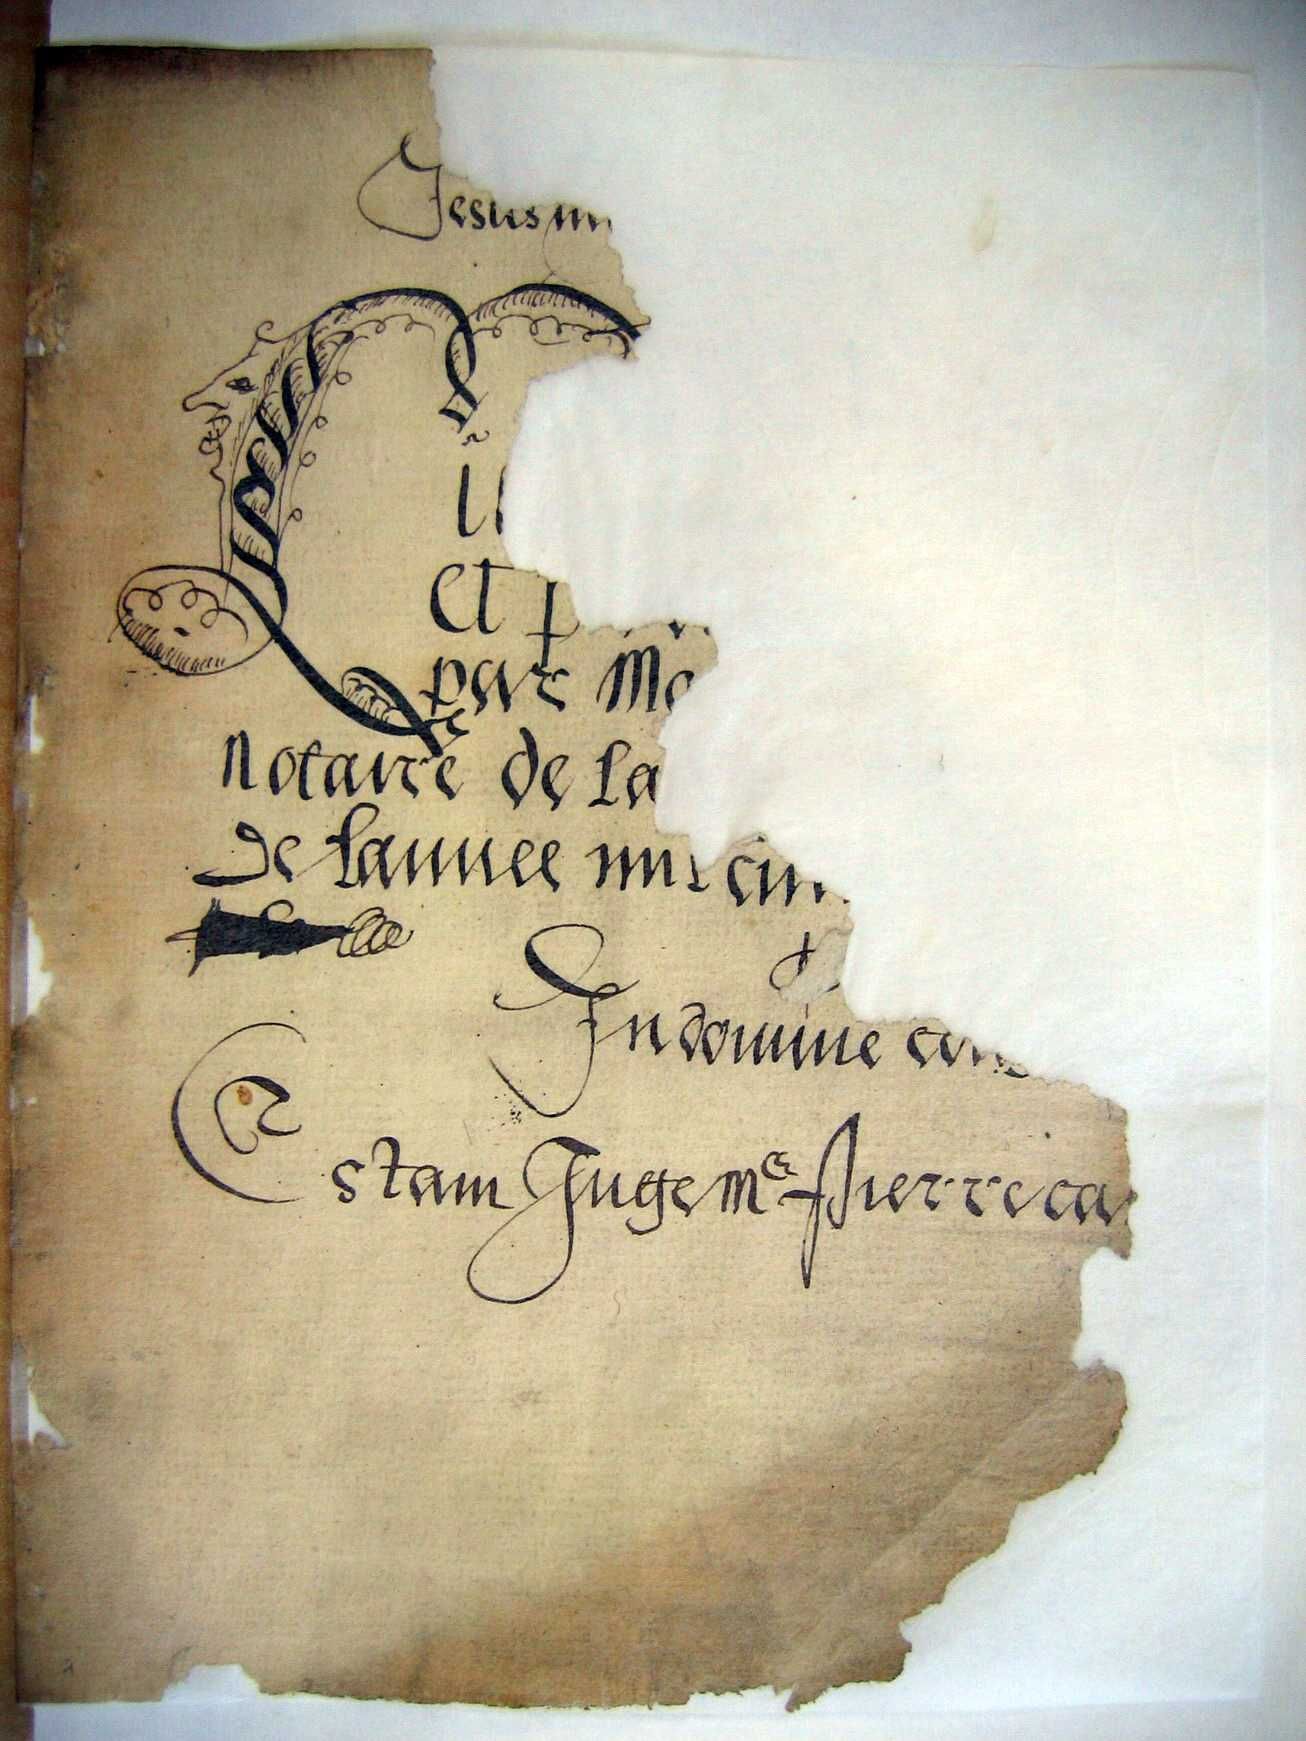 Jesus m
et p
par Me
notaire de la
de lannee mil cin
In domine con
Estam Juge me Pierre ca